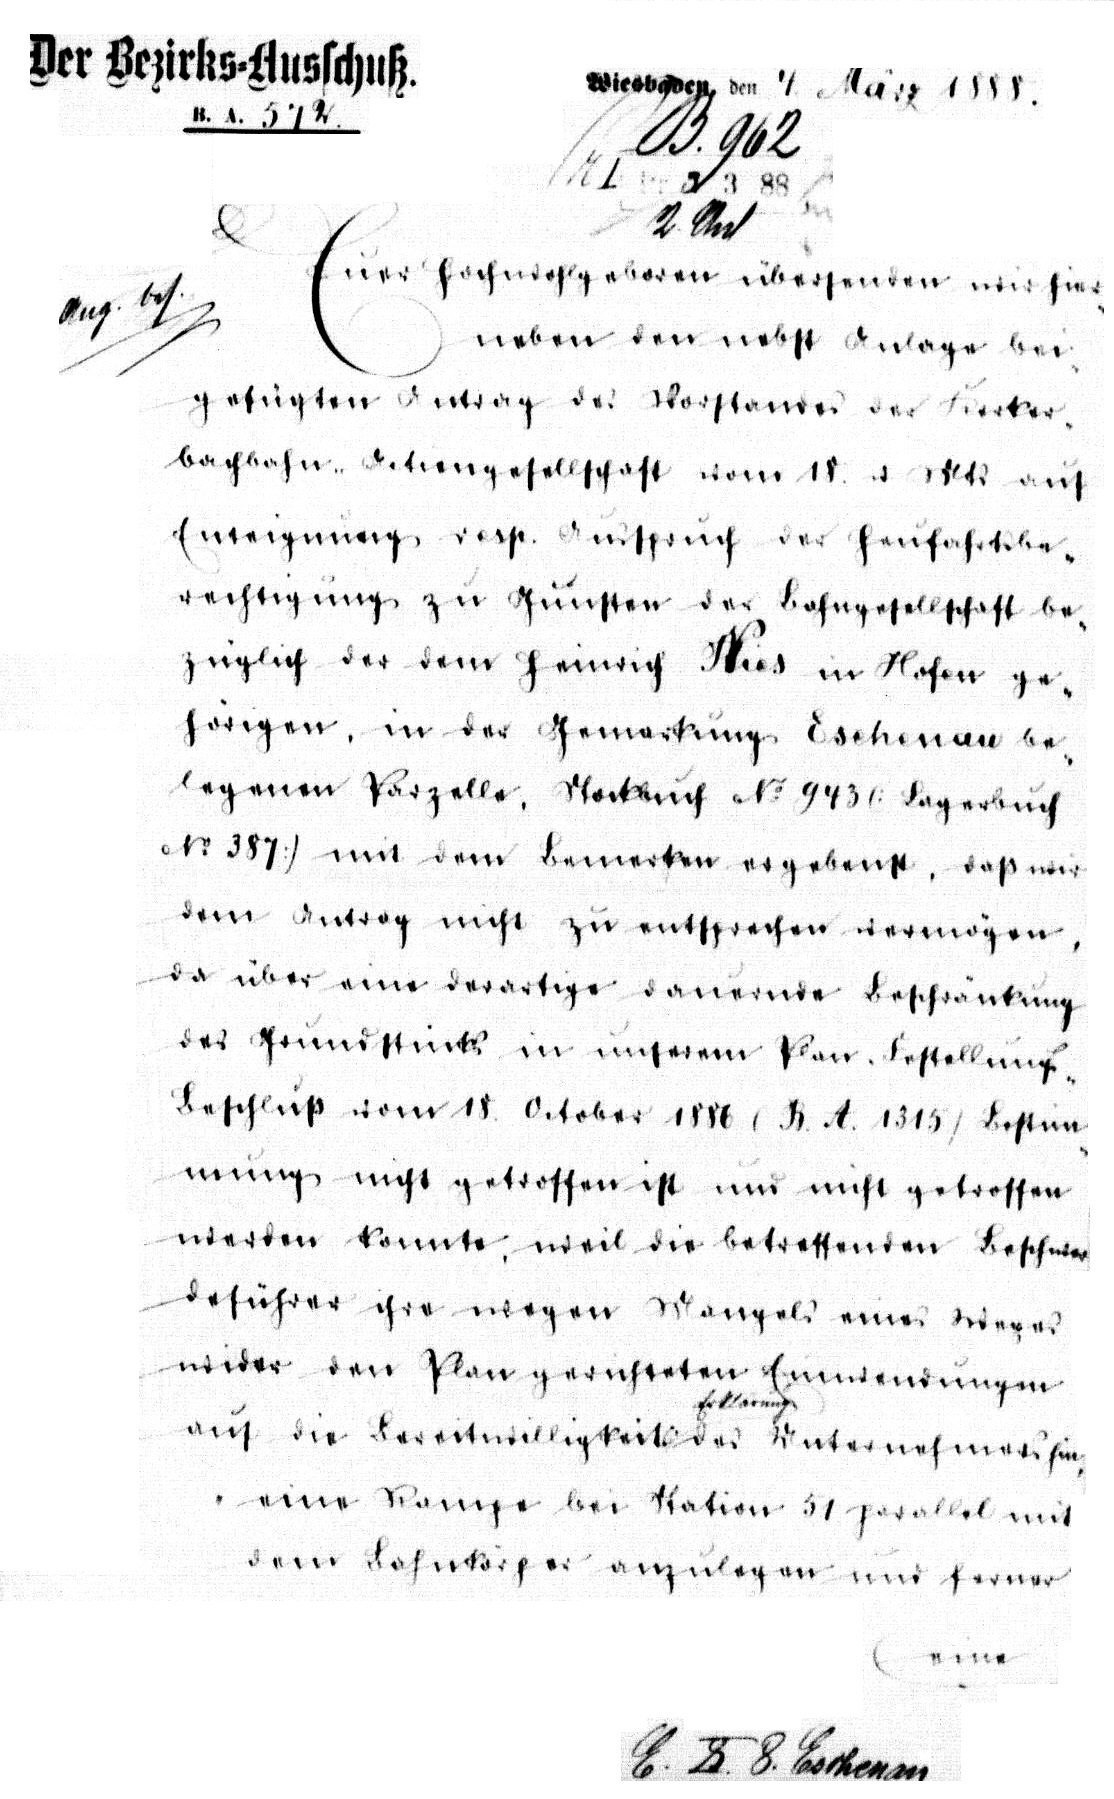 Der Bezirks-Ausschuß.
Wiesbaden, den 4. März 1888.
B. A. 572.
B. 962
3 88
2 Anl
Euer Hochwohlgeboren übersenden wir hier-
neben den nebst Anlage bei-
gefügten Antrag des Vorstandes der Kerker-
bachbahn-Actiengesellschaft vom 18. v. Mts auf
Enteignung resp. Ausspruch der Heufahrtsbe-
rechtigung zu Gunsten der Bahngesellschaft be-
züglich der dem Heinrich Nies in Hofen ge-
hörigen, in der Gemarkung Eschenau be-
legenen Parzelle, Stockbuch No 943 (: Lagerbuch
No 387:) mit dem Bemerken ergebenst, daß wir
dem Antrag nicht zu entsprechen vermögen,
da über eine derartige dauernde Beschränkung
des Grundstücks in unserem Plan-Festellungs-
Beschluß vom 18. October 1886 (B. A. 1315) Bestim-
mung nicht getroffen ist und nicht getroffen
werden konnte, weil die betreffenden Beschwer
deführer ihre wegen Mangels eines Weges
wider den Plan gerichteten Einwendungen
Erklärung
auf die Bereitwilligkeits des Unternehmers hin,
eine Rampe bei Station 51 parallel mit
dem Bahnkörper anzulegen und ferner
eine
E. II. 8. Eschenau